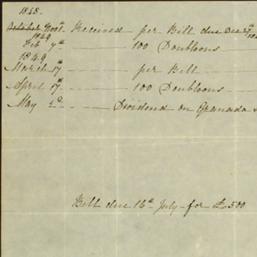 1848.
Received per Bill due Decr
1849
Feby 7th 100 Doubloons
1849
March 17th per Bill
April 17th 100 Doubloons
May 2d Dividend on Granada
Bill due 16th July for £500